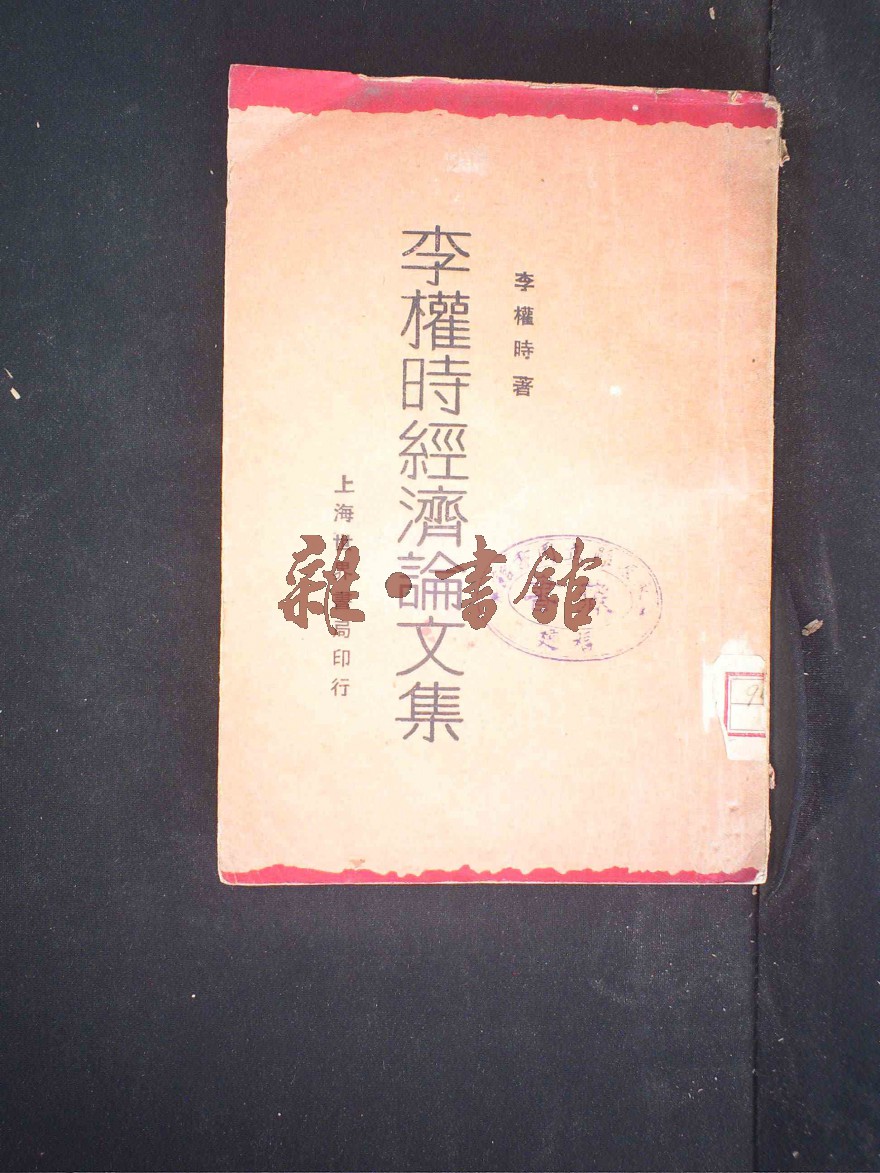 李權時著
李權時經濟論文集
上海世界書局印行
雜·書館